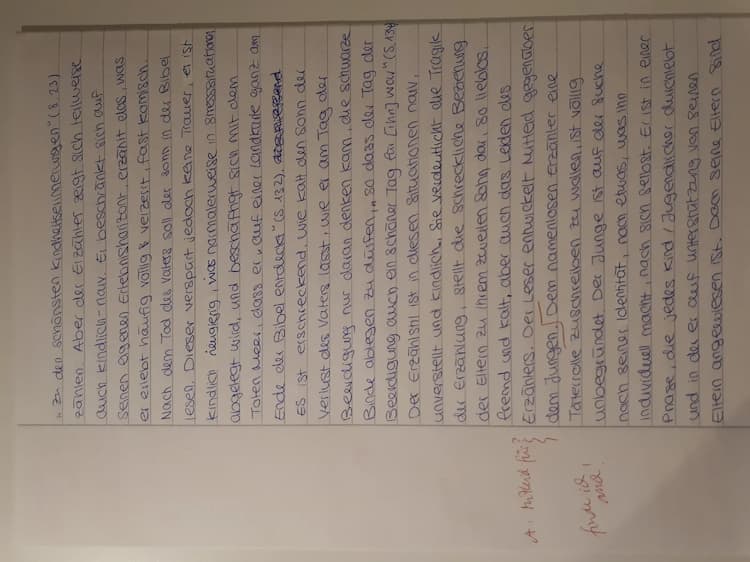 „Zu den schönsten Kindheitserinnerungen" (S. 23)
zählen. Aber der Erzähler zeigt sich teilweise
auch kindlich-naiv. Er beschränkt sich auf
seinen eigenen Erlebnishorizont, erzählt das, was
er erlebt häufig völlig verzerrt, fast komisch.
Nach dem Tod des Vaters soll der Sohn in der Bibel
lesen. Dieser verspürt jedoch keine Trauer, er ist
kindlich neugierig, was normalerweise in Stresssituationen
abgelegt wird, und beschäftigt sich mit dem
Toten Meer, dass er „auf einer Landkarte ganz am
Ende der Bibel entdeckt" (S. 132),
Es ist erschreckend, wie kalt den Sohn der
Verlust des Vaters lässt, wie er am Tag der
Beerdigung nur daran denken kann, die schwarze
Binde ablegen zu dürfen, „so dass der Tag der
Beerdigung auch ein schöner Tag für [ihn] war" (S. 134)
Der Erzählstil ist in diesen Situationen naiv,
unverstellt und kindlich. Sie verdeutlicht die Tragik
der Erzählung, stellt die schreckliche Beziehung
der Eltern zu ihrem zweiten Sohn dar, so lieblos,
fremd und kalt, aber auch das Leiden des
Erzählers. Der Leser entwickelt Mitleid gegenüber
dem Jungen. Dem namenlosen Erzähler eine
Täterrolle zuschreiben zu wollen, ist völlig
unbegründet. Der Junge ist auf der Suche
nach seiner Identität, nach etwas, was ihn
individuell macht, nach sich selbst. Er ist in einer
Phase, die jedes Kind / Jugendlicher durchlebt
und in der er auf Unterstützung von seinen
Eltern angewiesen ist. Doch seine Eltern sind
A: Mitleid für?
finde ich
auch!